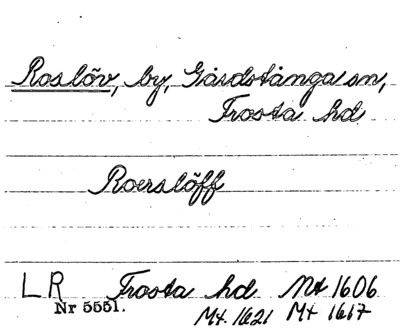 Roslöv, by, Gårdstånga sn,
Frosta hd
Roerslöff
LR Frosta hd Mt 1606
Nr 5551. Mt. 1621 Mt 1617